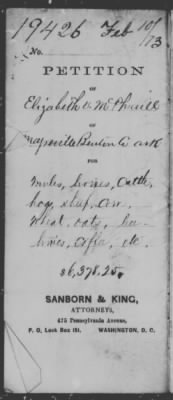 19426 Feb 10/73
No.
PETITION
OF
Elizabeth
OF
Maysville Benton Co Ark
FOR
Mules, horses, Cattle,
hogs, sheep, corn,
wheat, oats,
etc.
$6,378.25
SANBORN & KING,
ATTORNEYS,
475 Pennsylvania Avenue,
P. O. Lock Box 151. WASHINGTON, D. C.